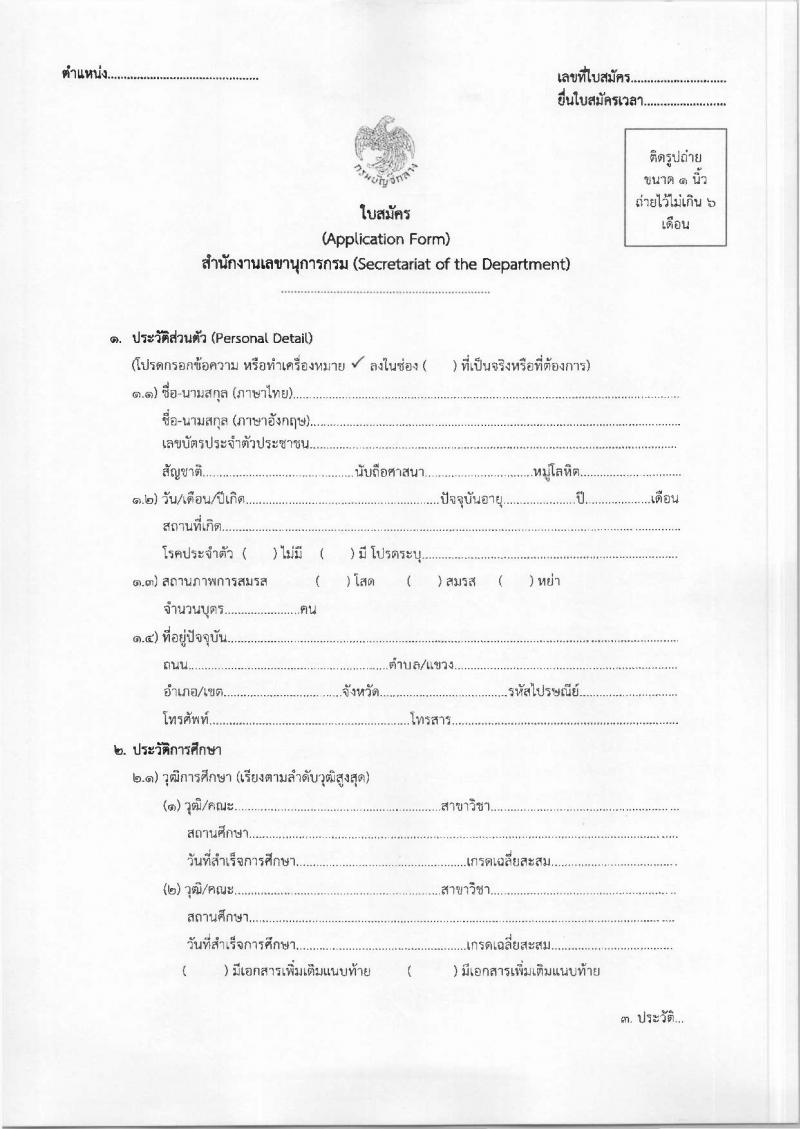 ตำแหน่ง............................................
เลขที่ใบสมัคร............................
ยื่นใบสมัครเวลา........................
ติดรูปถ่าย
ขนาด ๑ นิ้ว
ถ่ายไว้ไม่เกิน ๖
เดือน
กรมบัญชีกลาง
ใบสมัคร
(Application Form)
สำนักงานเลขานุการกรม (Secretariat of the Department)
๑. ประวัติส่วนตัว (Personal Detail)
(โปรดกรอกข้อความ หรือทำเครื่องหมาย ✓ ลงในช่อง ( ) ที่เป็นจริงหรือที่ต้องการ)
๑.๑) ชื่อ-นามสกุล (ภาษาไทย)............................................................
ชื่อ-นามสกุล (ภาษาอังกฤษ)............................................................
เลขบัตรประจำตัวประชาชน............................................................
สัญชาติ..............................นับถือศาสนา..............................หมู่โลหิต..............................
๑.๒) วัน/เดือน/ปีเกิด..............................ปัจจุบันอายุ....................ปี....................เดือน
สถานที่เกิด............................................................
โรคประจำตัว ( ) ไม่มี ( ) มี โปรดระบุ............................................................
๑.๓) สถานภาพการสมรส ( ) โสด ( ) สมรส ( ) หย่า
จำนวนบุตร......................คน
๑.๔) ที่อยู่ปัจจุบัน............................................................
ถนน..............................ตำบล/แขวง..............................
อำเภอ/เขต..............................จังหวัด..............................รหัสไปรษณีย์..............................
โทรศัพท์..............................โทรสาร..............................
๒. ประวัติการศึกษา
๒.๑) วุฒิการศึกษา (เรียงตามลำดับวุฒิสูงสุด)
(๑) วุฒิ/คณะ..............................สาขาวิชา..............................
สถานศึกษา............................................................
วันที่สำเร็จการศึกษา..............................เกรดเฉลี่ยสะสม..............................
(๒) วุฒิ/คณะ..............................สาขาวิชา..............................
สถานศึกษา............................................................
วันที่สำเร็จการศึกษา..............................เกรดเฉลี่ยสะสม..............................
( ) มีเอกสารเพิ่มเติมแนบท้าย ( ) มีเอกสารเพิ่มเติมแนบท้าย
๓. ประวัติ...